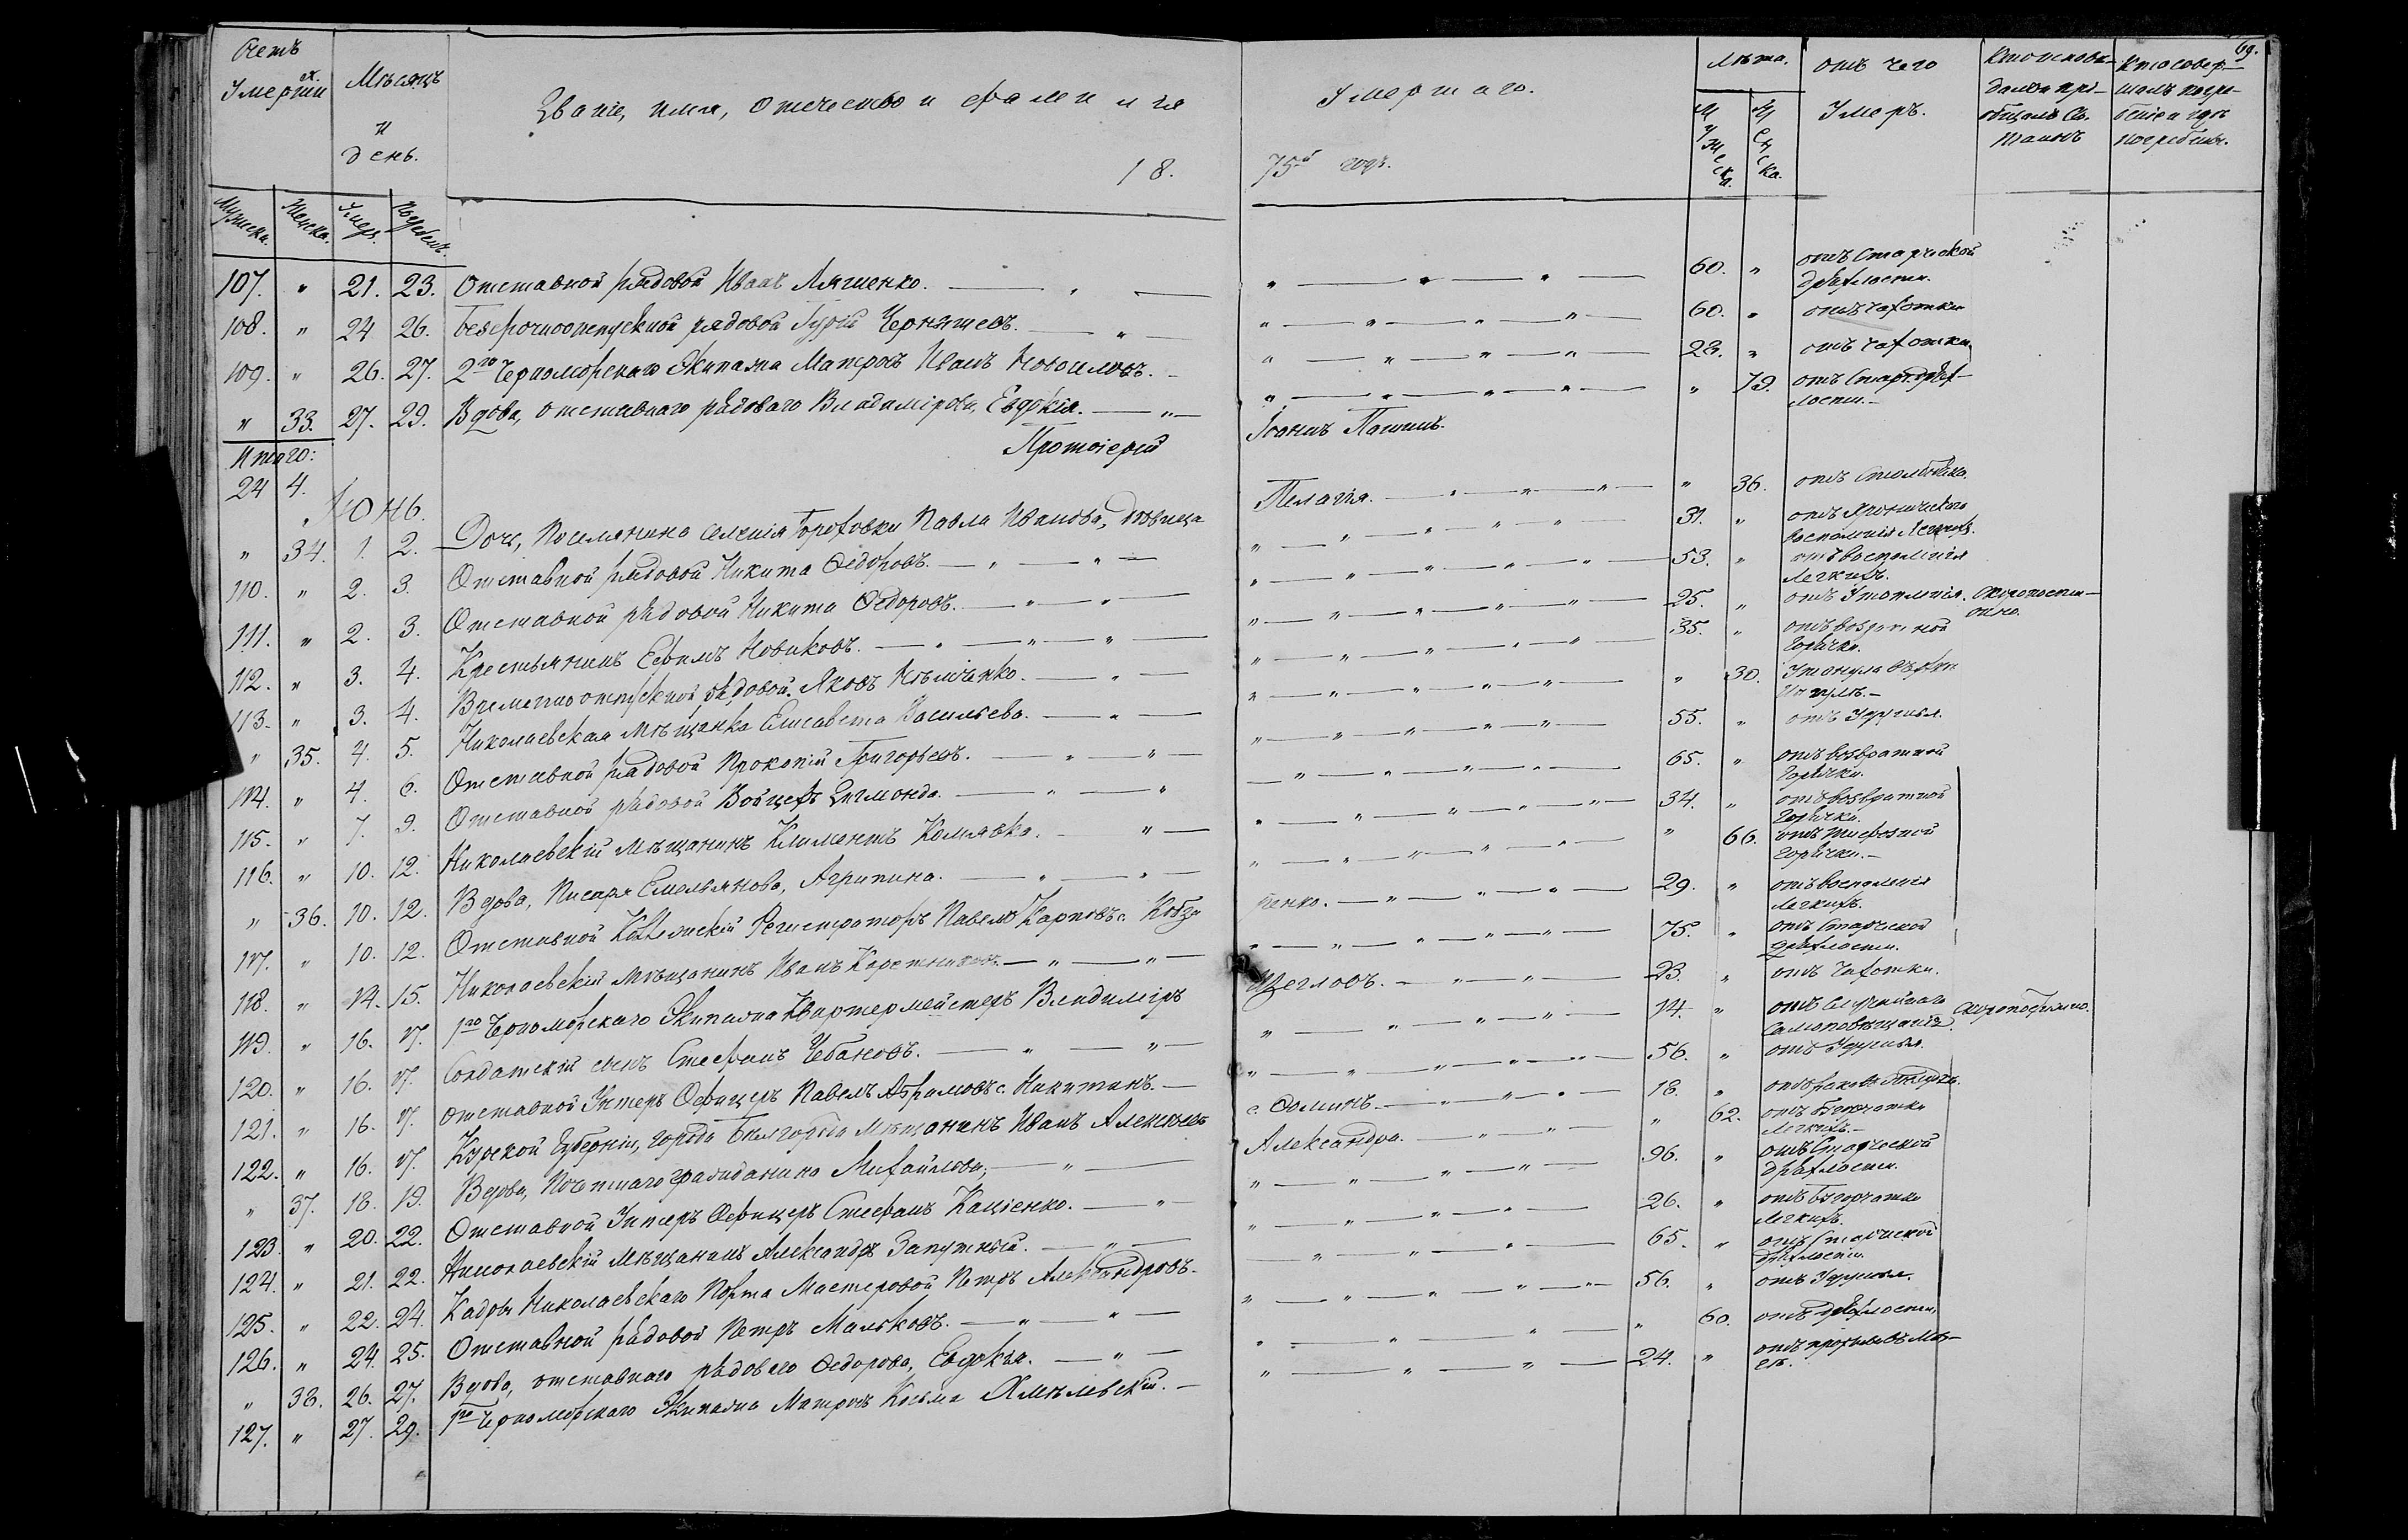 69.
Счетъ Умершихъ. Мѣсяцъ и день. Званіе, имя, отечество и фамилія Умершаго. Лѣта. отъ чего Умеръ. Кто исповѣдалъ и пріобщалъ Св. Таинъ Кто совершалъ погребеніе и гдѣ погребены.
18. 75й годъ.
Мужска. Женска. Умер. Погребен. Мужеска. Женска.
107. " 21. 23. Отставной рядовой Иванъ Ляшенко. 60. " отъ Старческой
дряхлости.
108. " 24 26. Безсрочноотпускной рядовой Гурій Чернышевъ. 60. " отъ чахотки
109. " 26. 27. 2го Черноморскаго Экипажа Матросъ Иванъ Новосиловъ. 28. " отъ чахотки.
" 33. 27. 29. Вдова, отставнаго рядоваго Владимірова, Евдокія. " 79. отъ Стар. дрях-
лости.
Протоіерей Іоаннъ Пашинъ.
Итого:
24 4.
Юнь.
" 34. 1. 2. Дочь, Поселянина селенія Гороховки Павла Иванова, дѣвица Пелагія. " 36. отъ Столбняка.
110. " 2. 3. Отставной рядовой Никита Ѳедоровъ. 31. " отъ Хроническаго
воспаленія Легкихъ.
111. " 2. 3. Отставной рядовой Никита Ѳедоровъ. 53. " отъ воспаленія
Легкихъ.
112. " 3. 4. Крестьянинъ Ефимъ Новиковъ. 25. " отъ Утопленія. Скоропости-
жно.
113. " 3. 4. Временноотпускной рядовой Яковъ Кѣмченко. 35. " отъ возвратной
Горячки.
" 35. 4. 5. Николаевская мѣщанка Елисавета Васильева. " 30. Утонула въ рѣкѣ
Ингулѣ.
114. " 4. 6. Отставной рядовой Прокопій Григорьевъ. 55. " отъ Удушья.
115. " 7. 9. Отставной рядовой Войцехъ Зигмондъ. 65. " отъ возвратной
Горячки.
116. " 10. 12. Николаевскій мѣщанинъ Климентъ Комлявка. 34. " отъ возвратной
Горячки.
" 36. 10. 12. Вдова, Писаря Емельянова, Агрипина. " 66. отъ тифозной
Горячки.
117. " 10. 12. Отставной Коллежскій Регистраторъ Павелъ Карповъ с. Кобзаренко. 29. " отъ воспаленія
Легкихъ.
118. " 14. 15. Николаевскій мѣщанинъ Иванъ Каретниковъ. 75. " отъ Старческой
дряхлости.
119. " 16. 17. 1го Черноморскаго Экипажа Квартермейстеръ Владиміръ Щегловъ. 23. " отъ Чахотки.
120. " 16. 17. Солдатскій сынъ Стефанъ Чебановъ. 14. " отъ случайнаго
самоповѣшанія. Скоропостижно.
121. " 16. 17. Отставной Унтеръ Офицеръ Павелъ Абрамовъ с. Никитинъ. 56. " отъ Удушья.
122. " 16. 17. Курской Губерніи, города Бѣлгорода Мѣщанинъ Иванъ Алексѣевъ с. Ѳоминъ. 18. "
" 37. 18. 19. Вдова, Почетнаго гражданина Михайлова, Александра. " 62. отъ бугорчатки
Легкихъ.
123. " 20. 22. Отставной Унтеръ Офицеръ Стефанъ Каціенко. 96. " отъ Старческой
дряхлости.
124. " 21. 22. Николаевскій мѣщанинъ Александръ Запутный. 26. " отъ бугорчатки
Легкихъ.
125. " 22. 24. Кадры Николаевскаго Порта Мастеровой Петръ Александровъ. 65. " отъ Старческой
дряхлости.
126. " 24. 25. Отставной рядовой Петръ Мальковъ. 56. " отъ Удушья.
" 38. 26. 27. Вдова, отставнаго рядоваго Ѳедорова, Евдокія. " 60. отъ дряхлости.
127. " 27. 29. 1го Черноморскаго Экипажа Матросъ Косьма Хмѣлевскій. 24. "